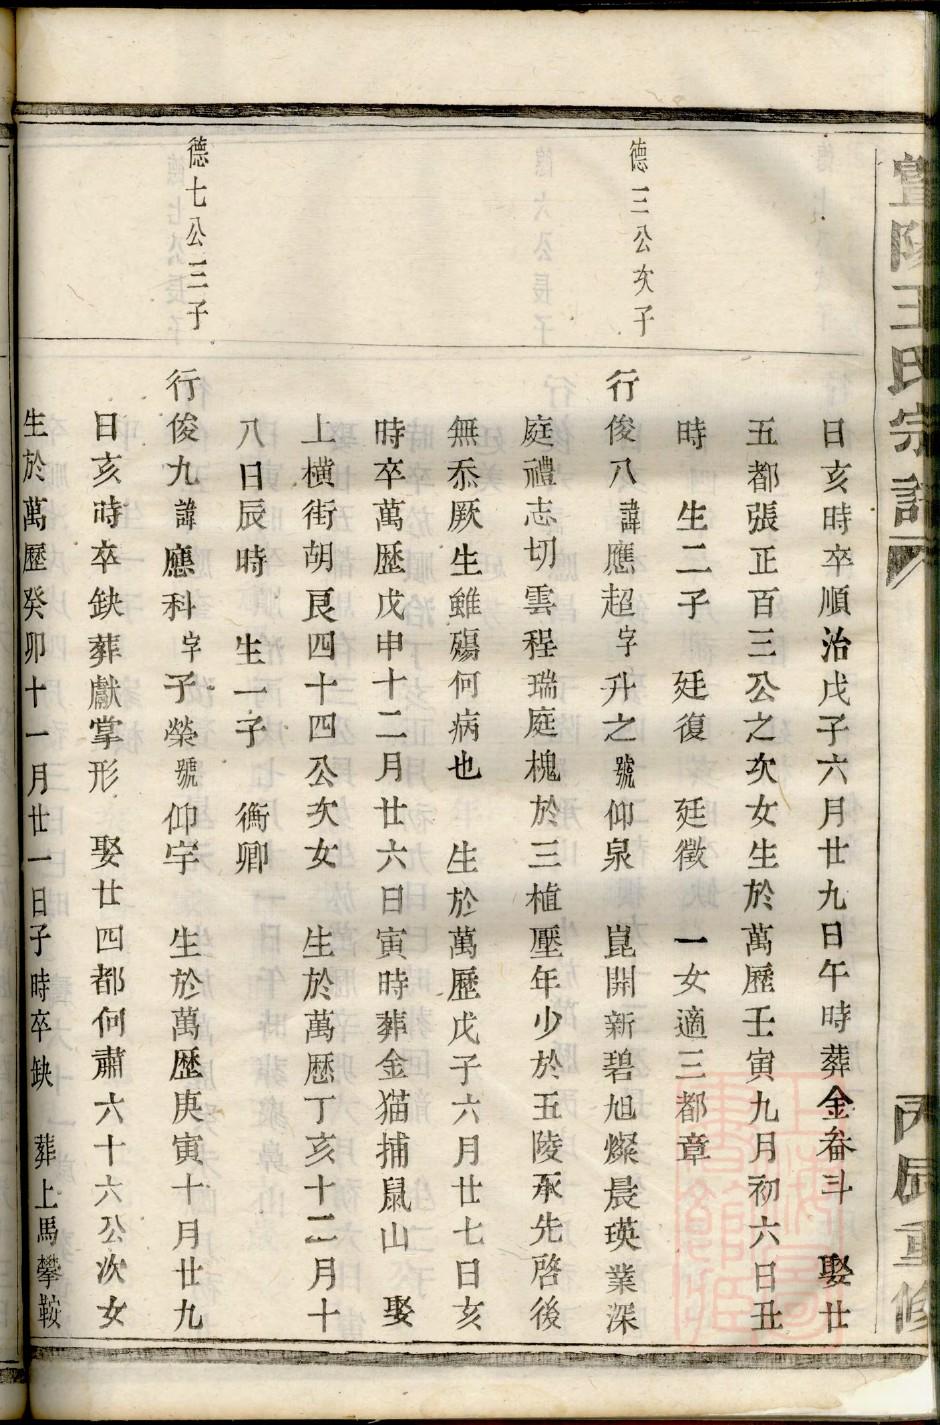 暨陽王氏宗譜
丙辰重修
日亥時卒順治戊子六月廿九日午時葬金畚斗 娶廿
五都張正百三公之次女生於萬歷壬寅九月初六日丑
時 生二子 廷復 廷徵 一女適三都章
德三公次子
行俊八諱應超字升之號仰泉 崑開新碧旭燦晨瑛業深
庭禮志切雲程瑞庭槐於三植壓年少於五陵承先啓後
無忝厥生雖殤何病也 生於萬歷戊子六月廿七日亥
時卒萬歷戊申十二月廿六日寅時葬金猫捕鼠山 娶
上橫街胡艮四十四公次女 生於萬歷丁亥十二月十
八日辰時 生一子 衡卿
德七公三子
行俊九諱應科字子榮號仰宇 生於萬歷庚寅十月廿九
日亥時卒缺葬獻掌形 娶廿四都何肅六十六公次女
生於萬歷癸卯十一月廿一日子時卒缺 葬上馬攀鞍